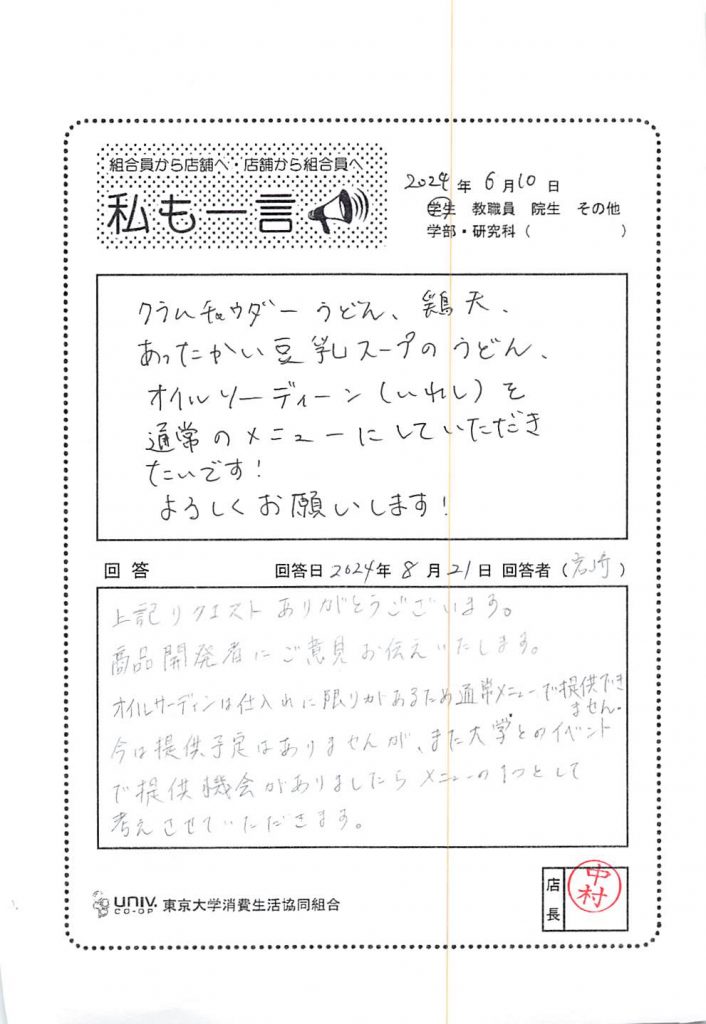 組合員から店舗へ・店舗から組合員へ
私も一言
2024年6月10日
学生 教職員 院生 その他
学部・研究科（ ）
クラムチャウダーうどん、鶏天、
あったかい豆乳スープのうどん、
オイルソーディーン(いわし)を
通常のメニューにしていただき
たいです！
よろしくお願いします！
回答 回答日2024年8月21日 回答者（岩崎）
上記リクエストありがとうございます。
商品開発者にご意見お伝えいたします。
オイルサーディンは仕入れに限りがあるため通常メニューで提供でき
ません。
今は提供予定はありませんが、また大学とのイベント
で提供機会がありましたらメニューの1つとして
考えさせていただきます。
UNIV. CO-OP 東京大学消費生活協同組合
店長
中村